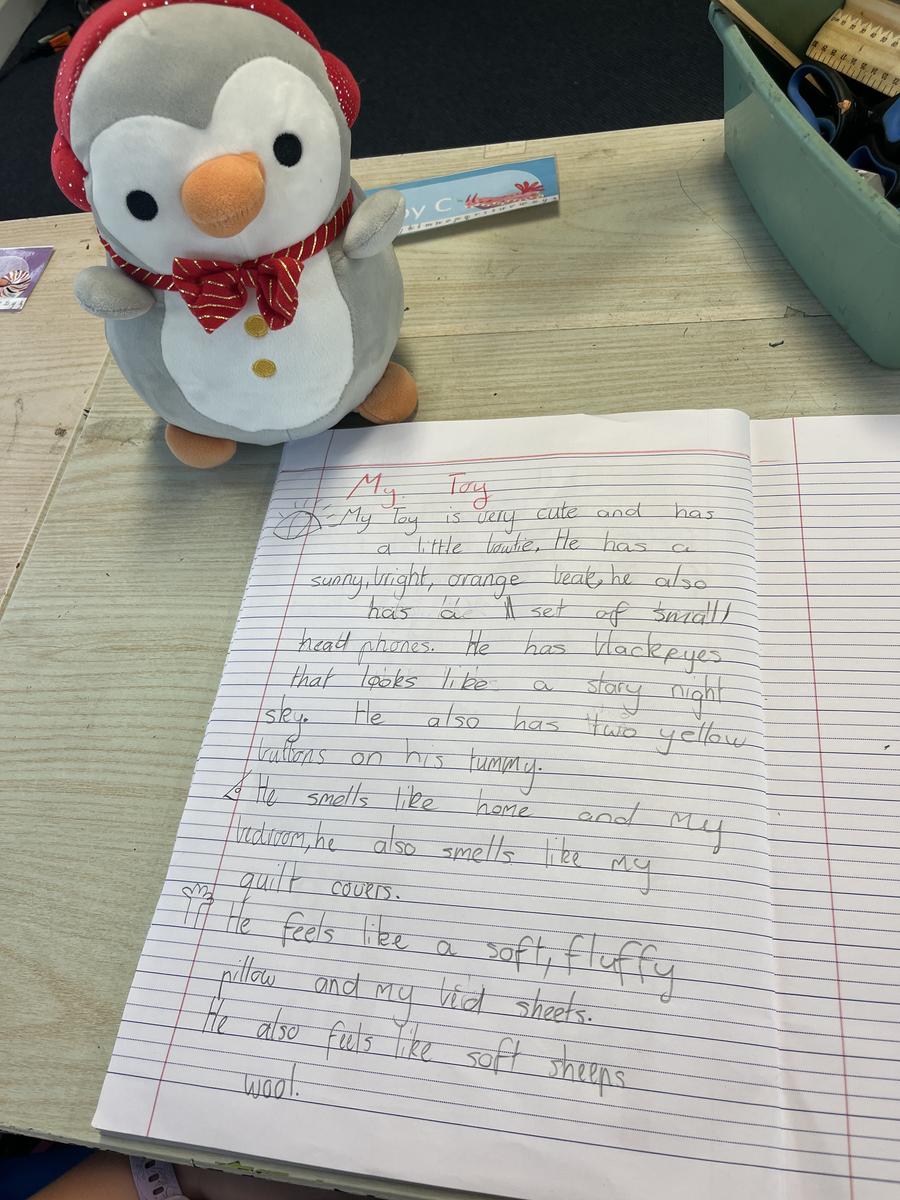 My Toy
My Toy is very cute and has
a little bowtie. He has a
sunny, bright, orange beak, he also
has a set of small
head phones. He has black eyes
that looks like a stary night
sky. He also has two yellow
buttons on his tummy.
He smells like home and My
bedroom, he also smells like my
quilt covers.
He feels like a soft, fluffy
pillow and my bed sheets.
He also feels like soft sheeps
wool.